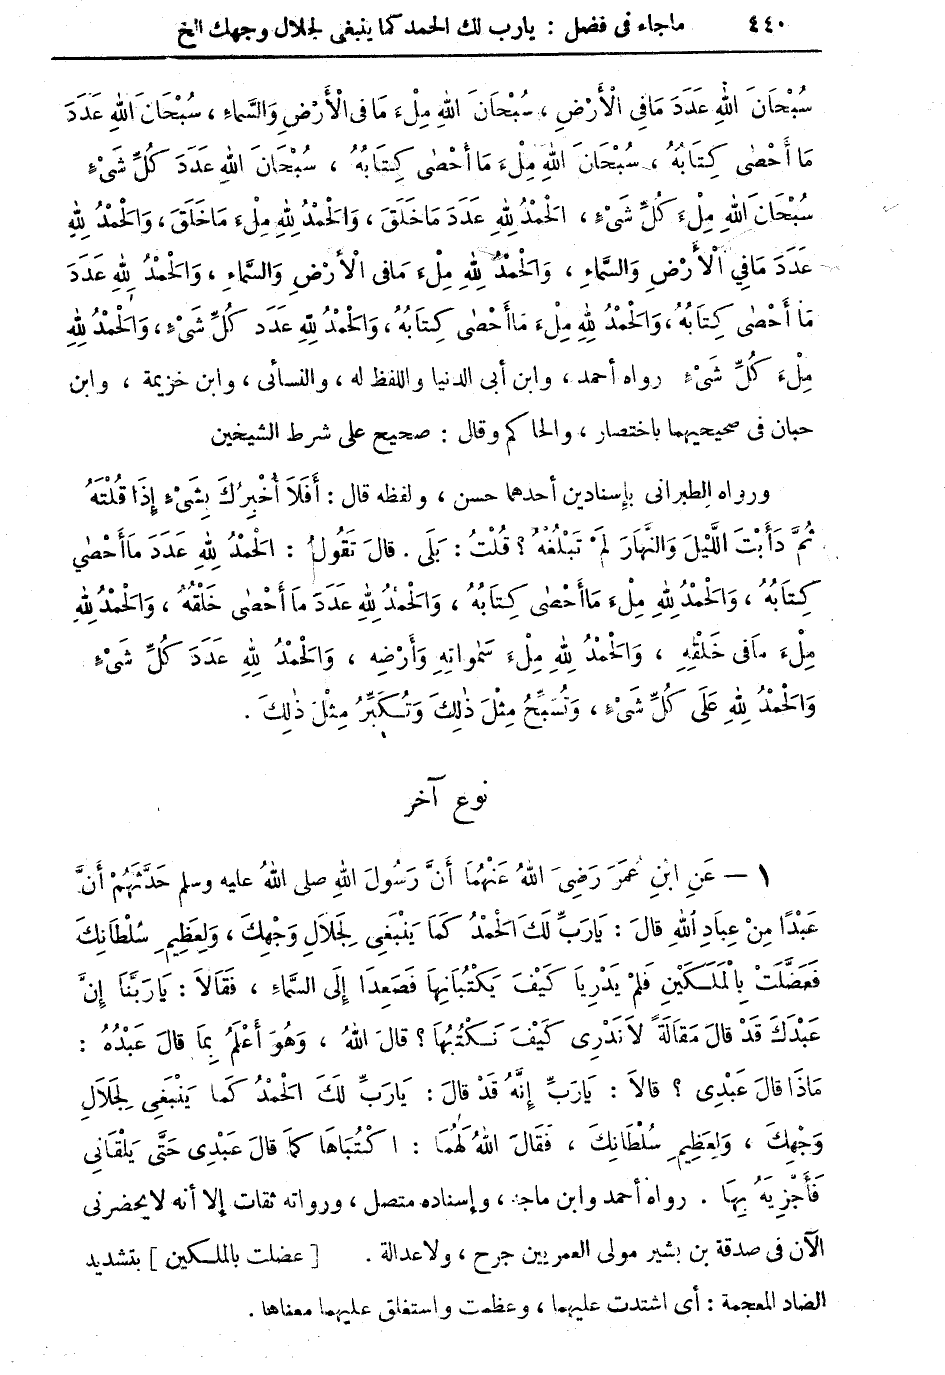 ٤٤٠ ماجاء فى فضل : يارب لك الحمد كما ينبغى لجلال وجهك الخ
سُبْحَانَ اللهِ عَدَدَ مَافِي الْأَرْضِ ، سُبْحَانَ اللهِ مِلْءَ مَافِى الْأَرْضِ وَالسَّماءِ ، سُبْحَانَ اللهِ عَدَدَ
مَا أَحْصٰى كِتَابُهُ ، سُبْحَانَ اللهِ مِلْءَ مَا أَحْصٰى كِتَابُهُ ، سُبْحَانَ اللهِ عَدَدَ كُلِّ شَىْءٍ
سُبْحَانَ اللهِ مِلْءَ كُلِّ شَىْءٍ ، الْحَمْدُ لِلهِ عَدَدَ مَاخَلَقَ ، وَالْحَمْدُ لِلهِ مِلْءَ مَاخَلَقَ ، وَالْحَمْدُ لِلهِ
عَدَدَ مَافِي الْأَرْضِ وَالسَّماءِ ، وَالْحَمْدُ لِلهِ مِلْءَ مَافِى الْأَرْضِ وَالسَّماءِ ، وَالْحَمْدُ لِلهِ عَدَدَ
مَا أَحْصٰى كِتَابُهُ ، وَالْحَمْدُ لِلهِ مِلْءَ مَاأَحْصٰى كِتابُهُ ، وَالْحَمْدُ لِلّهِ عَدَدَ كُلِّ شَىْءٍ ، وَالْحَمْدُ لِلهِ
مِلْءَ كُلِّ شَىْءٍ رواه أحمد ، وابن أبى الدنيا واللفظ له ، والنسائى ، وابن خزيمة ، وابن
حبان فى صحيحيهما باختصار ، والحاكم وقال : صحيح على شرط الشيخين
ورواه الطبرانى بإسنادين أحدهما حسن ، ولفظه قال : أَفَلاَ أُخْبِرُكَ بِشَىْءٍ إِذَا قُلْتَهُ
ثُمَّ دَأَبْتَ اللَّيْلَ وَالنَّهَارَ لَمْ تَبْلُغْهُ ؟ قُلْتُ : بَلَى . قالَ تَقُولُ : الْحَمْدُ لِلهِ عَدَدَ مَاأَحْصٰي
كِتابُهُ ، وَالْحَمْدُ لِلهِ مِلْءَ مَاأَحْصٰى كِتابُهُ ، وَالْحَمْدُ لِلهِ عَدَدَ مَا أَحْصٰى خَلْقُهُ ، وَالْحَمْدُ لِلهِ
مِلْءَ مَافِى خَلْقِهِ ، وَالْحَمْدُ لِلهِ مِلْءَ سَمٰوَاتِهِ وَأَرْضِهِ ، وَالْحَمْدُ لِلهِ عَدَدَ كُلِّ شَىْءٍ
وَالْحَمْدُ لِلهِ عَلَى كُلِّ شَىْءٍ ، وَتُسَبِّحُ مِثْلَ ذٰلِكَ وَتُكَبِّرُ مِثْلَ ذٰلِكَ .
نوع آخر
١ – عَنِ ابْنِ عُمَرَ رَضِىَ اللهُ عَنْهُمَا أَنَّ رَسُولَ اللهِ صلى اللهُ عليه وسلم حَدَّثَهُمْ أَنَّ
عَبْدًا مِنْ عِبادِ اللهِ قالَ : يَارَبِّ لَكَ الْحَمْدُ كَمَا يَنْبَغِى لِجَلاَلِ وَجْهِكَ ، وَلِعَظِيمِ سُلْطَانِكَ
فَعَضَّلَتْ بِالْمَلَكَيْنِ فَلَمْ يَدْرِيَا كَيْفَ يَكْتُبَانِهَا فَصَعِدَا إِلَى السَّماءِ ، فَقَالاَ : يَارَبَّنَا إِنَّ
عَبْدَكَ قَدْ قالَ مَقَالَةً لاَنَدْرِى كَيْفَ نَكْتُبُهَا ؟ قالَ اللهُ ، وَهُوَ أَعْلَمُ بِمَا قالَ عَبْدُهُ :
مَاذَا قالَ عَبْدِى ؟ قالاَ : يَارَبِّ إِنَّهُ قَدْ قالَ : يَارَبِّ لَكَ الْحَمْدُ كَما يَنْبَغِى لِجَلاَلِ
وَجْهِكَ ، وَلِعَظِيمِ سُلْطَانِكَ ، فَقَالَ اللهُ لَهُمَا : اكْتُبَاهَا كَما قالَ عَبْدِى حَتَّى يَلْقَانِى
فَأَجْزِيَهُ بِهَا . رواه أحمد وابن ماجه ، وإسناده متصل ، ورواته ثقات إلا أنه لايحضرنى
الآن فى صدقة بن بشير مولى العمريين جرح ، ولاعدالة . [ عضلت بالملكين ] بتشديد
الضاد المعجمة : أى اشتدت عليهما ، وعظمت واستغلق عليهما معناها .